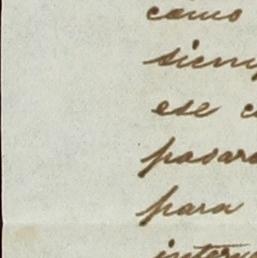 como
siem
ese c
pasar
para
inter